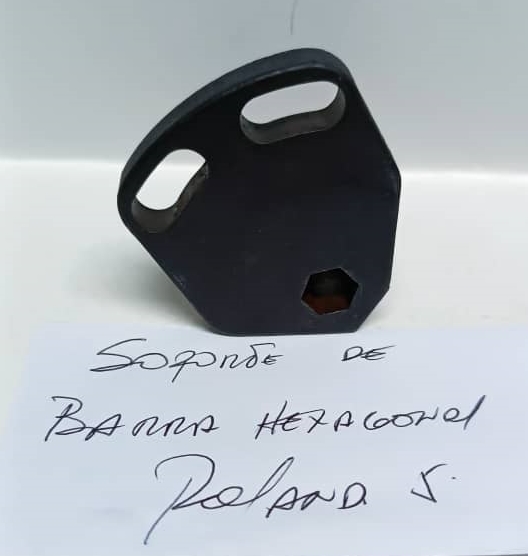 SOPORTE DE
BARRA HEXAGONAl
RolAND 5.